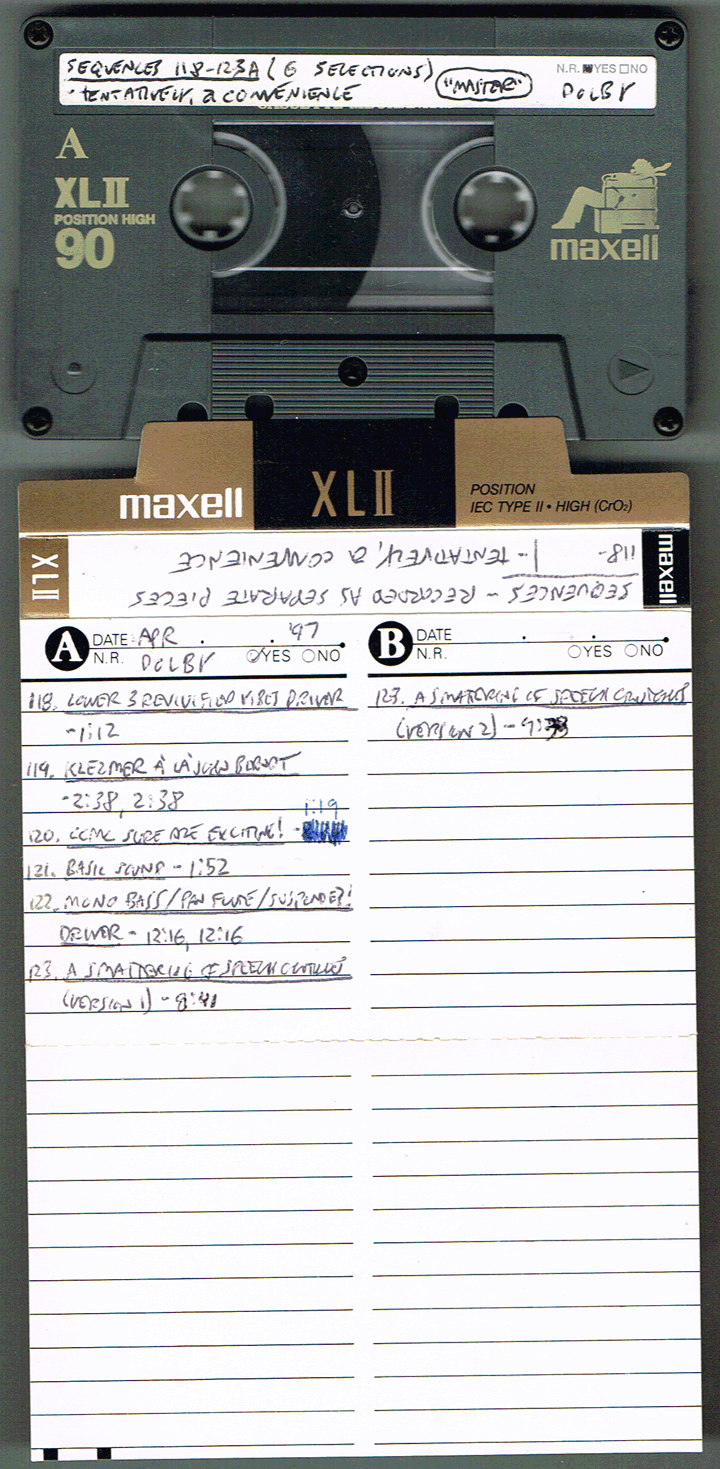 SEQUENCES 118-123A (6 SELECTIONS)
- TENTATIVELY, A CONVENIENCE
"MASTER"
N.R. YES NO
DOLBY
A
XLII
POSITION HIGH
90
maxell
maxell
XLII
POSITION
IEC TYPE II • HIGH (CrO₂)
XLII
maxell
SEQUENCES - RECORDED AS SEPARATE PIECES
118- - TENTATIVELY, A CONVENIENCE
A DATE APR . . '97
N.R. DOLBY YES NO
118. LOWER 3 REVIVIFIED VIBES DRIVER
- 1:12
119. KLEZMER À LA JOHN BERNDT
- 2:38, 2:38
1:19
120. CCMC SURE ARE EXCITING! -
121. BASIC SOUND - 1:52
122. MONO BASS/PAN FLUTE/SUSPENDED!
DRIVER - 12:16, 12:16
123. A SMATTERING OF SPEECH CRUTCHES
(VERSION 1) - 8:41
B DATE . .
N.R. YES NO
123. A SMATTERING OF SPEECH CRUTCHES
(VERSION 2) -